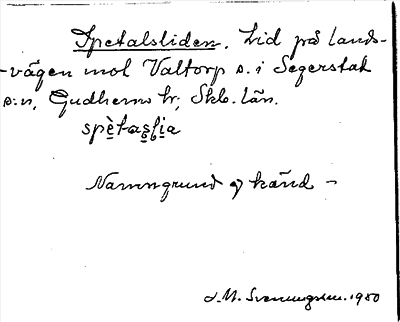 Spetalsliden. Lid på lands-
-vägen mot Valtorp s. i Segerstad
s:n, Gudhems hr; Skb. län.
spètasḷia
Namngrund ej känd -
S. M. Svenningsson. 1980